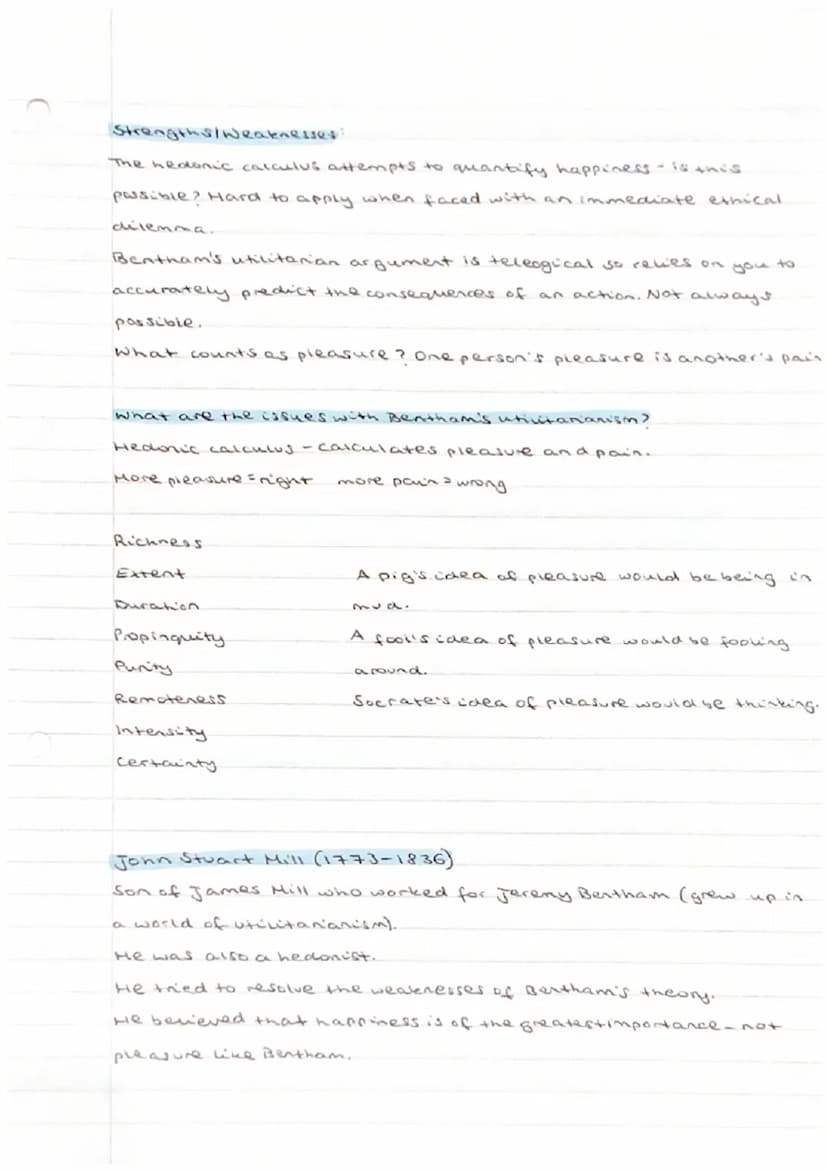 Strengths/Weaknesses:
The hedonic calculus attempts to quantify happiness - is this
possible? Hard to apply when faced with an immediate ethical
dilemma.
Bentham's utilitarian argument is teleogical so relies on you to
accurately predict the consequences of an action. Not always
possible.
What counts as pleasure? One person's pleasure is another's pain
What are the issues with Bentham's utilitarianism?
Hedonic calculus - calculates pleasure and pain.
More pleasure = right more pain = wrong
Richness
Extent
Duration
Propinquity
Purity
Remoteness
Intensity
Certainty
A pig's idea of pleasure would be being in
mud.
A fool's idea of pleasure would be fooling
around.
Socrate's idea of pleasure would be thinking.
John Stuart Mill (1773-1836)
Son of James Mill who worked for Jeremy Bentham (grew up in
a world of utilitarianism).
He was also a hedonist.
He tried to resolve the weaknesses of Bentham's theory.
He believed that happiness is of the greatest importance - not
pleasure like Bentham.